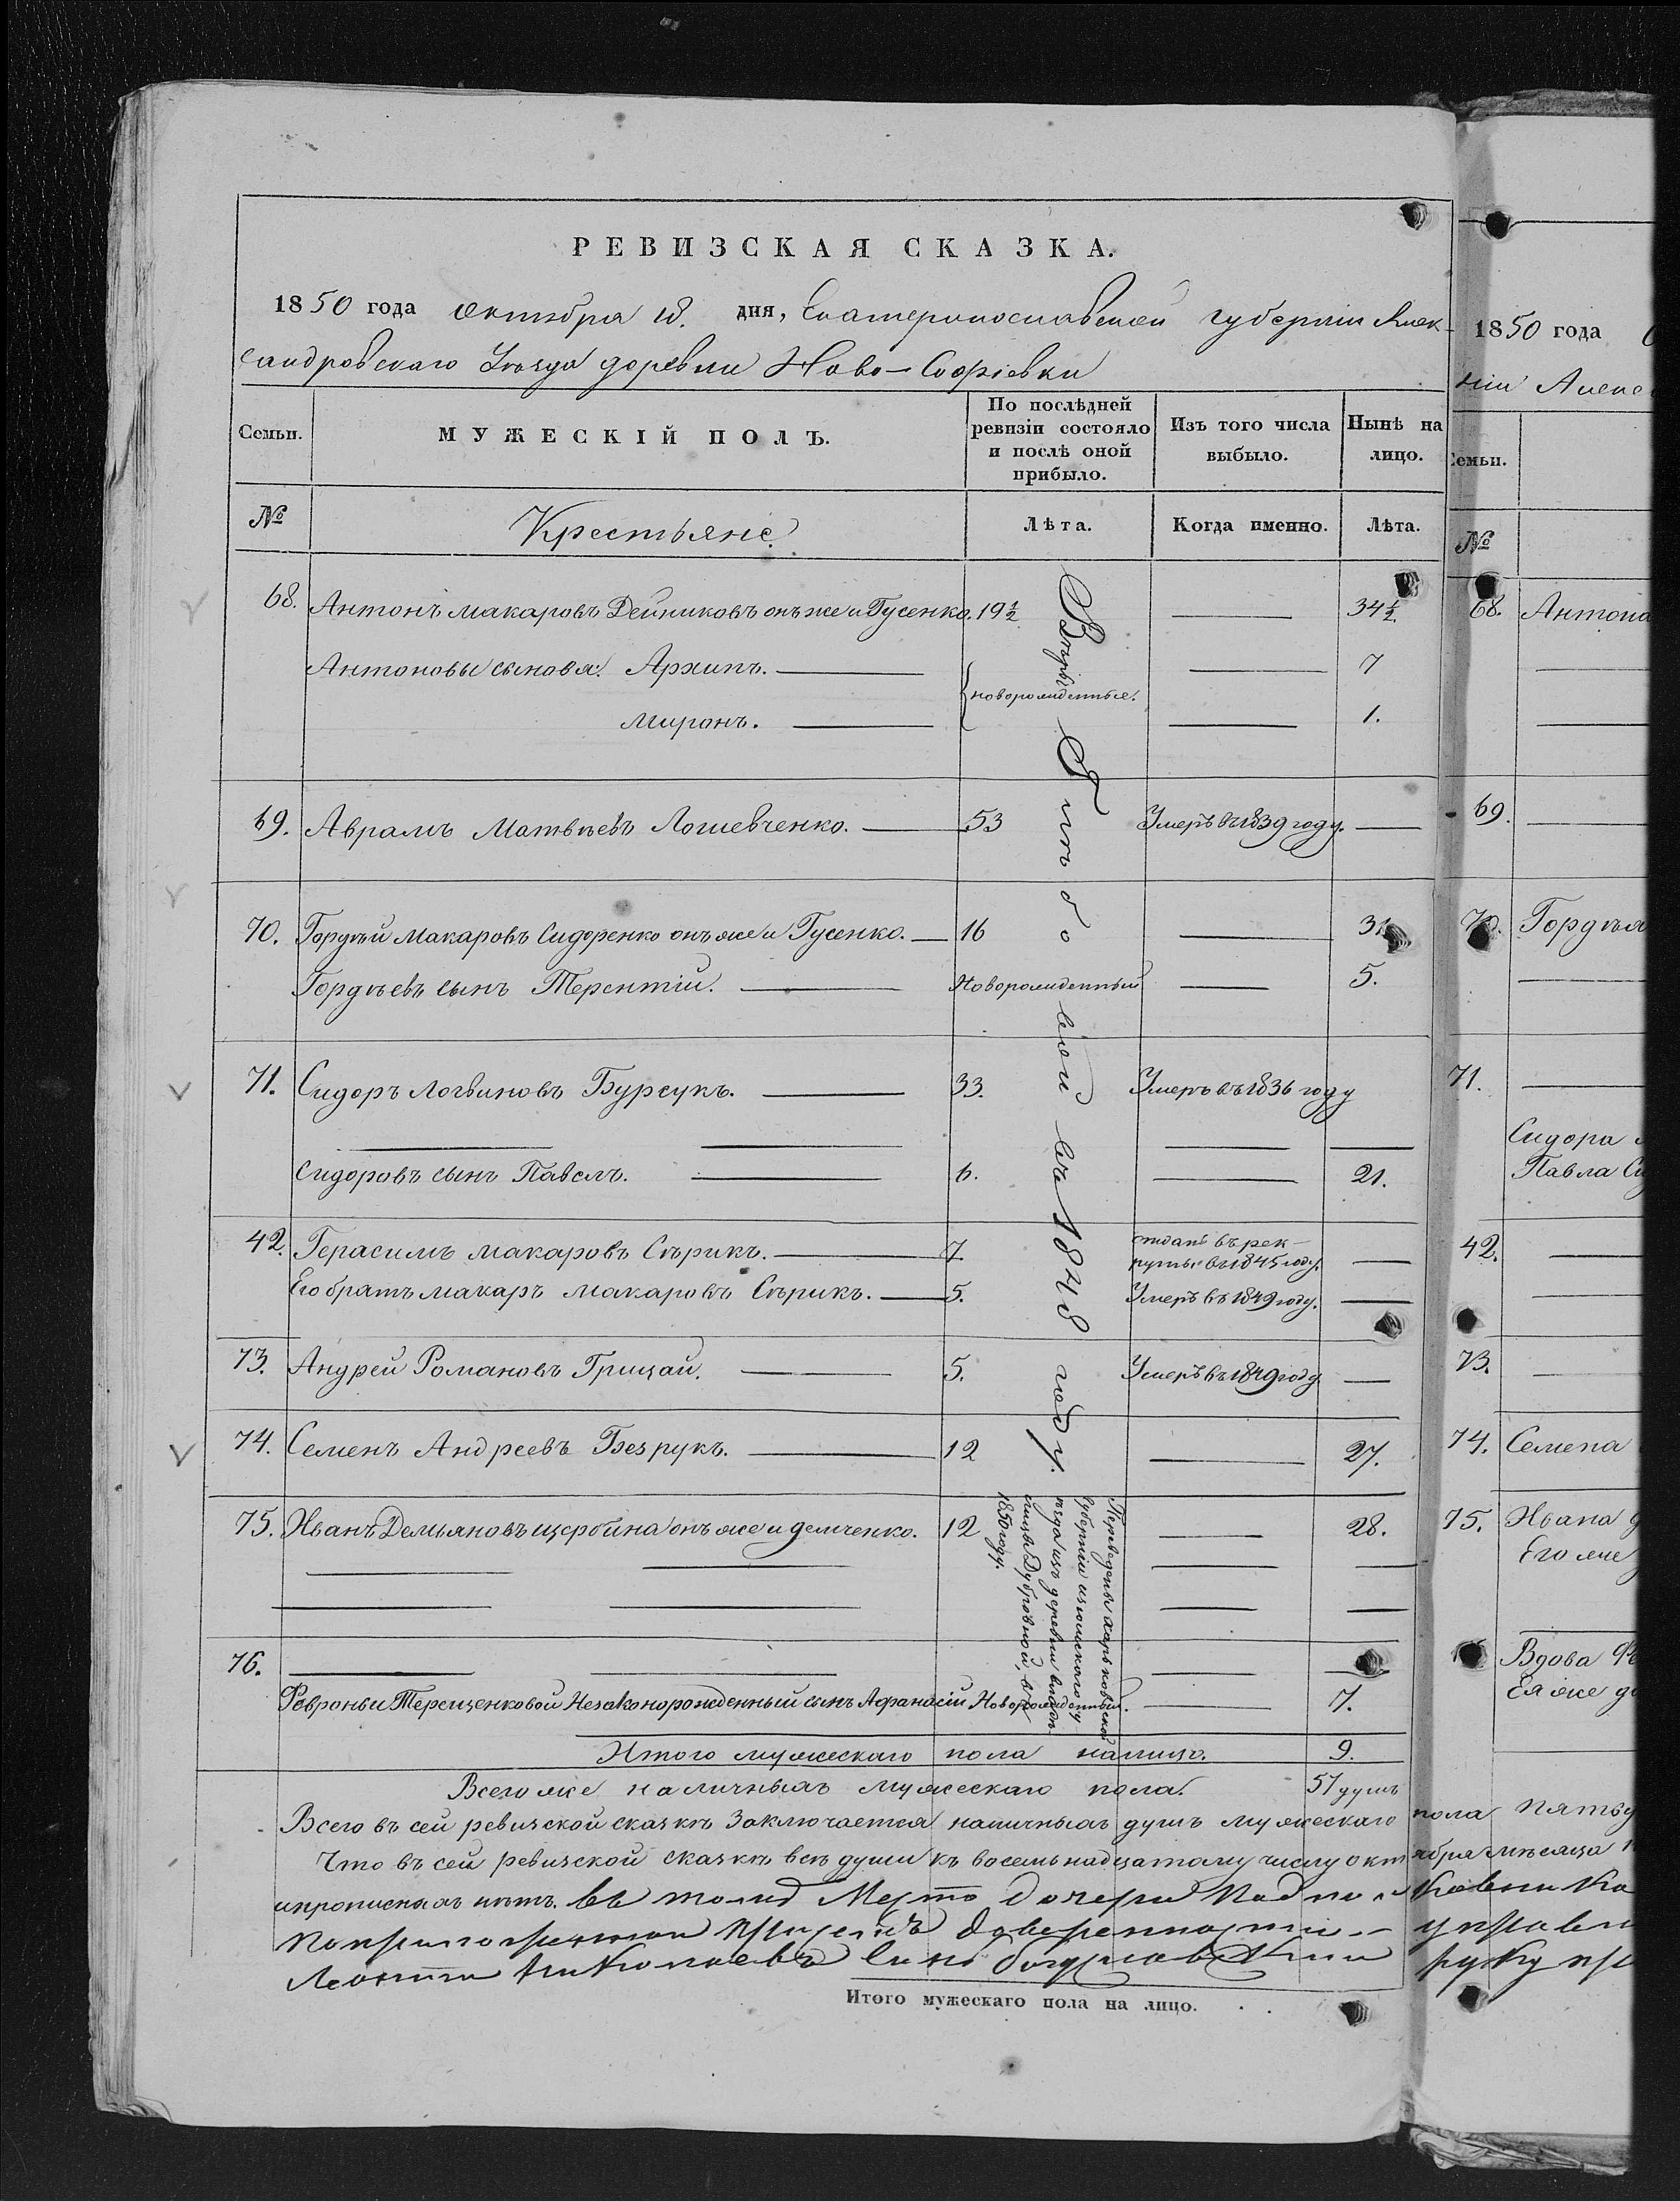 РЕВИЗСКАЯ СКАЗКА.
1850 года октября 18. дня, Екатеринославской губерніи Алек-
сандровскаго Уѣзда деревни Ново-Софіевки
Семьи. МУЖЕСКІЙ ПОЛЪ. По послѣдней ревизіи состояло и послѣ оной прибыло. Изъ того числа выбыло. Нынѣ на лицо.
№ Крестьяне Лѣта. Когда именно. Лѣта.
68. Антонъ Макаровъ Дейниковъ онъ же и Гусенко. 19½ 34½.
Антоновы сыновя: Архипъ. новорожденные. 7
Миронъ. 1.
69. Аврамъ Матвѣевъ Лошевченко. 53 Умеръ въ 1839 году.
70. Гордѣй Макаровъ Сидоренко онъ же и Гусенко. 16 31
Гордѣевъ сынъ Терентій. Новорожденный 5.
71. Сидоръ Логвиновъ Бурсукъ. 33. Умеръ въ 1836 году
Сидоровъ сынъ Павелъ. 6. 21.
42. Герасимъ Макаровъ Сѣрикъ. 7. отданъ въ рек-
руты въ 1845 году.
Его братъ Макаръ Макаровъ Сѣрикъ. 5. Умеръ въ 1849 году.
73. Андрей Романовъ Грицай. 5. Умеръ въ 1849 году
74. Семенъ Андреевъ Безрукъ. 12 27.
въ 1848 году.
75. Иванъ Демьяновъ Щербина онъ же и Демченко. 12 28.
Переведены Харьковской
губерніи Изюмскаго у
ѣзда изъ деревни
Дубровной, въ
1850 году.
76.
Февроньи Терещенковой Незаконорожденный сынъ Афанасій Новорожденный. 7.
Итого мужескаго пола налицо. 9.
Всего же наличныхъ мужескаго пола. 57 душъ
Всего въ сей ревизской сказкѣ Заключается наличныхъ душъ мужескаго пола пятьд
Что въ сей ревизской сказкѣ всѣ души къ восемьнадцатому числу октября мѣсяца
и прописныхъ нѣтъ. въ томъ Место дочери
доверенности
Леонтий Николаевъ сынъ руку
Итого мужескаго пола на лицо.
1850 года
ніи Алекс
Семьи.
№
68. Антона
69.
70. Гордѣя
71.
Сидора
Павла Си
42.
73.
74. Семена
75. Ивана
Его же
Вдова
Ея же